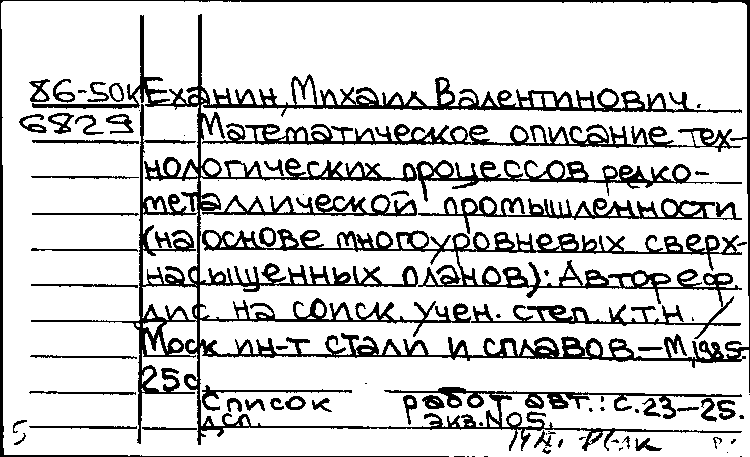 86-50к Еханин, Михаил Валентинович.
6829 Математическое описание тех-
нологических процессов редко-
металлической промышленности
(на основе многоуровневых сверх-
насыщенных планов): Автореф.
дис. на соиск. учен. степ. к.т.н. /
Моск. ин-т стали и сплавов.—М., 1985.
25с.
Список работ авт.: с.23—25.
Дсп. экз.№05.
5